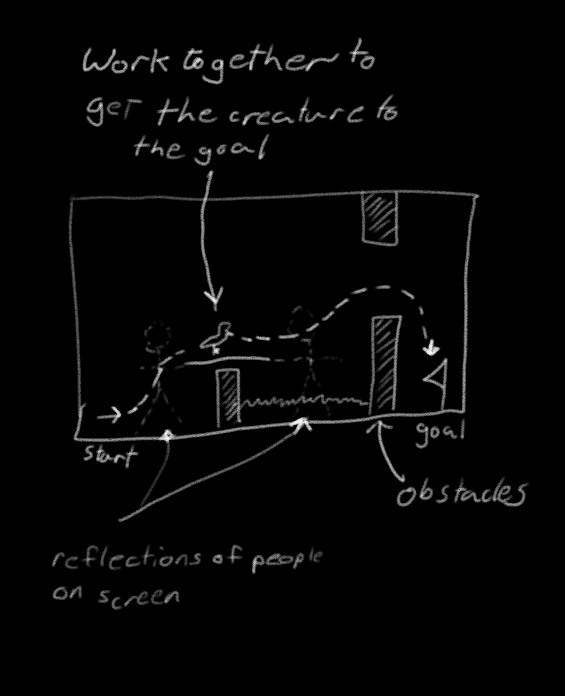 Work together to
get the creature to
the goal
start
goal
obstacles
reflections of people
on screen